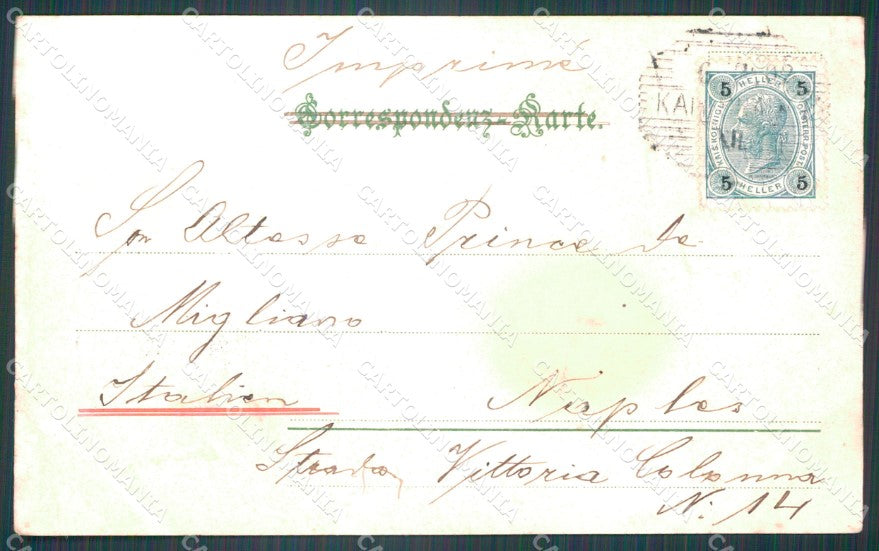 Imprimé
Correspondenz-Karte.
5 HELLER 5
KAIS. KOENIGL. OESTERR. POST.
5 HELLER 5
KAI
Son Altesse Prince de
Migliano
Italien Naples
Strada Vittoria Colonna
N. 14
CARTOLINOMANIA